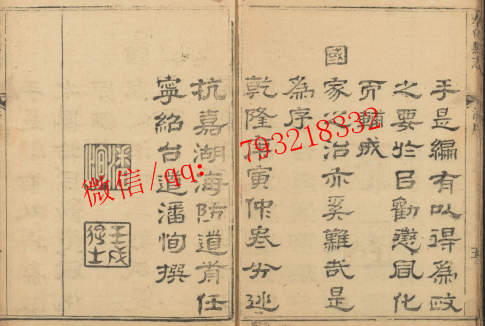 于是編有以得為政
之要於㠯勸懲風化
而輔成
國家之治亦奚難哉是
為序
乾隆庚寅仲春分巡
杭嘉湖海防道前任
寧紹台道潘恂撰
壬戌進士
微信/qq: 793218332